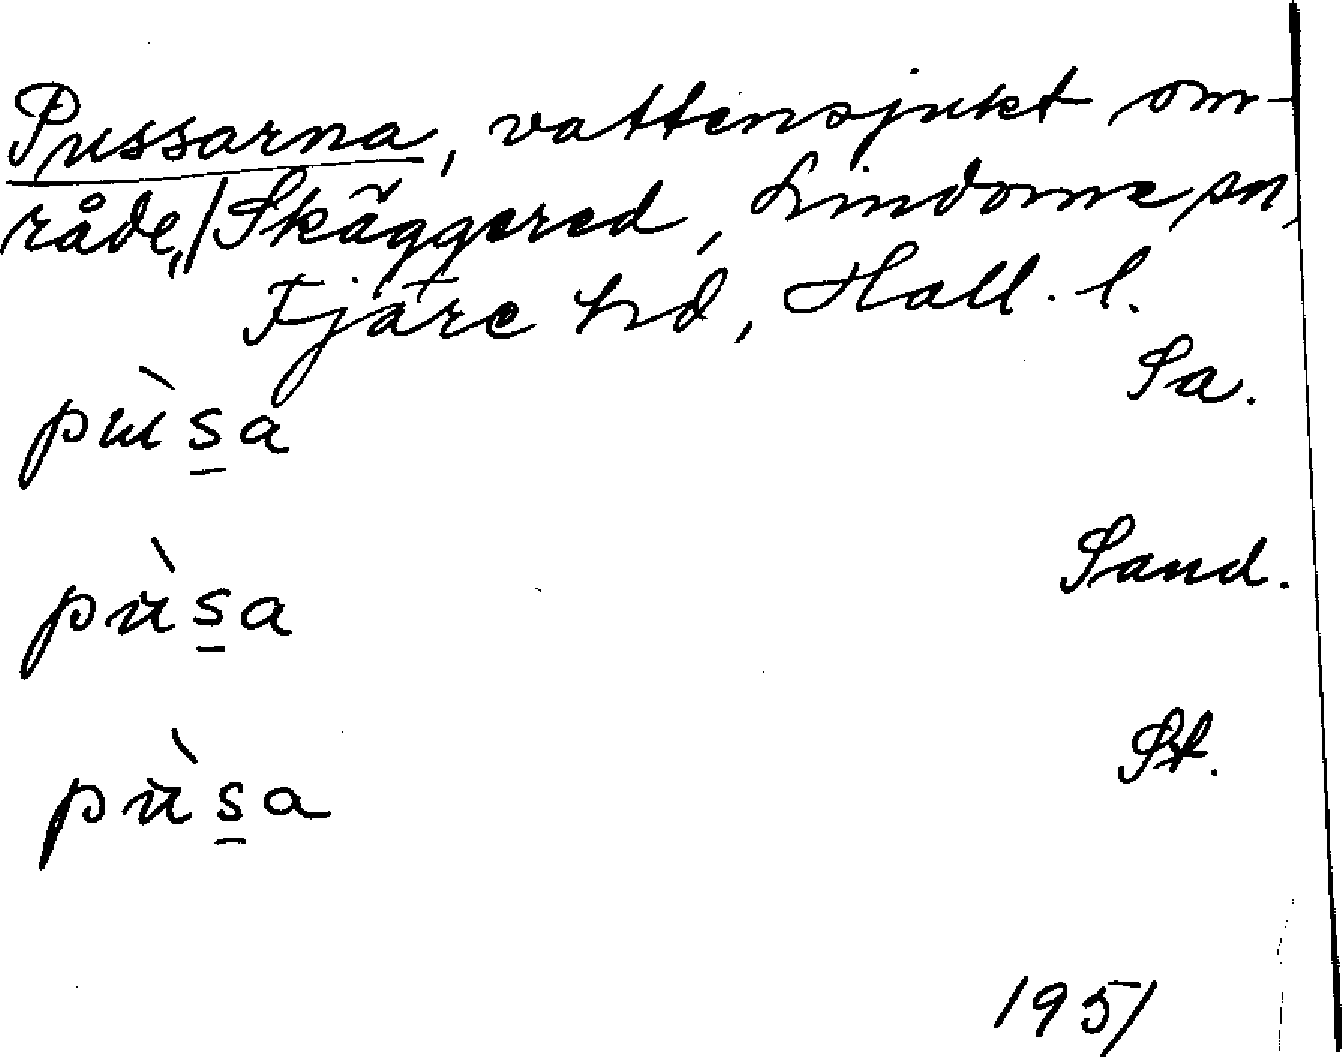 Pussarna, vattensjukt om-
råde,/Skäggered, Lindome sn,
Fjäre hd, Hall. l.
Sa.
pùsa
Sand.
pùsa
St.
pùsa
1951